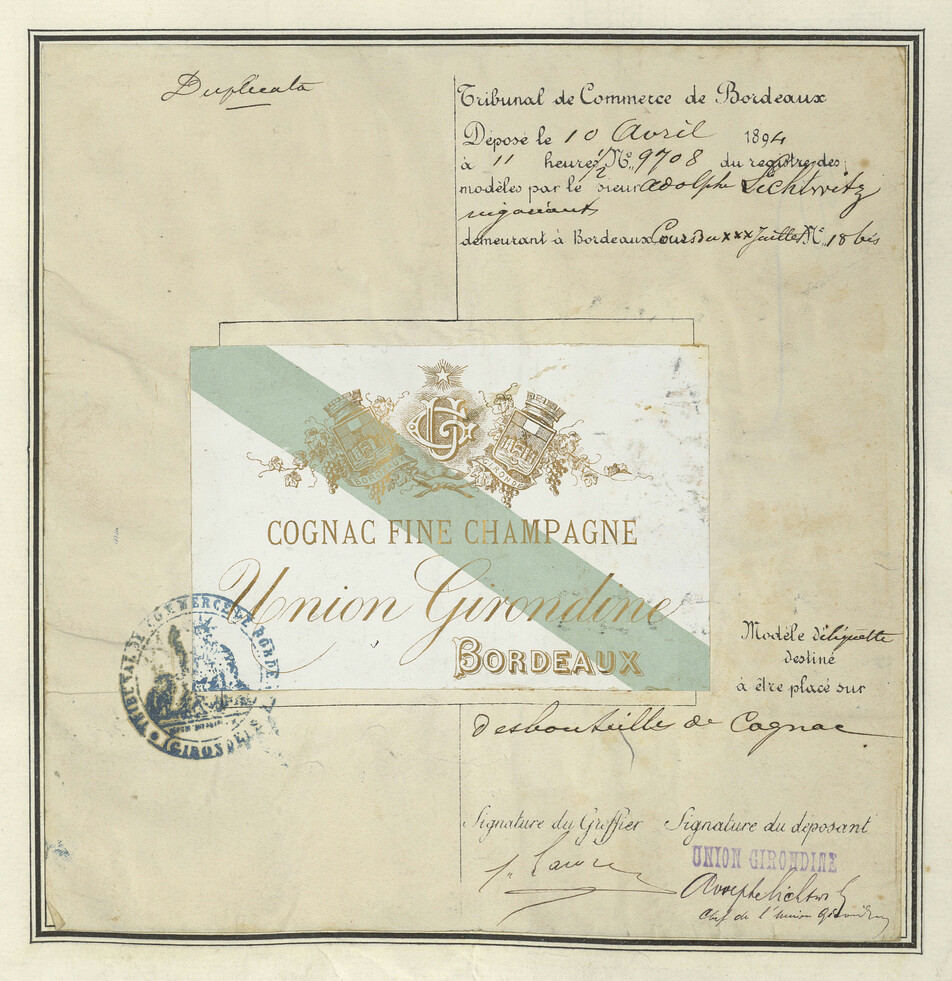 Duplicata
Tribunal de Commerce de Bordeaux
Déposé le 10 Avril 1894
à 11 heures 1/2 N° 9708 du registre des
modèles par le sieur Adolphe Lichtwitz
négociant
demeurant à Bordeaux Cours du XXX Juillet N° 18 bis
G
BORDEAUX
GIRONDE
COGNAC FINE CHAMPAGNE
Union Girondine
BORDEAUX
TRIBUNAL DE COMMERCE DE BORDEAUX
(GIRONDE)
Modèle d'étiquette
destiné
à être placé sur
des bouteilles de Cognac
Signature du Greffier Signature du déposant
UNION GIRONDINE
Adolphe Lichtwitz
Chef de l'Union Girondine